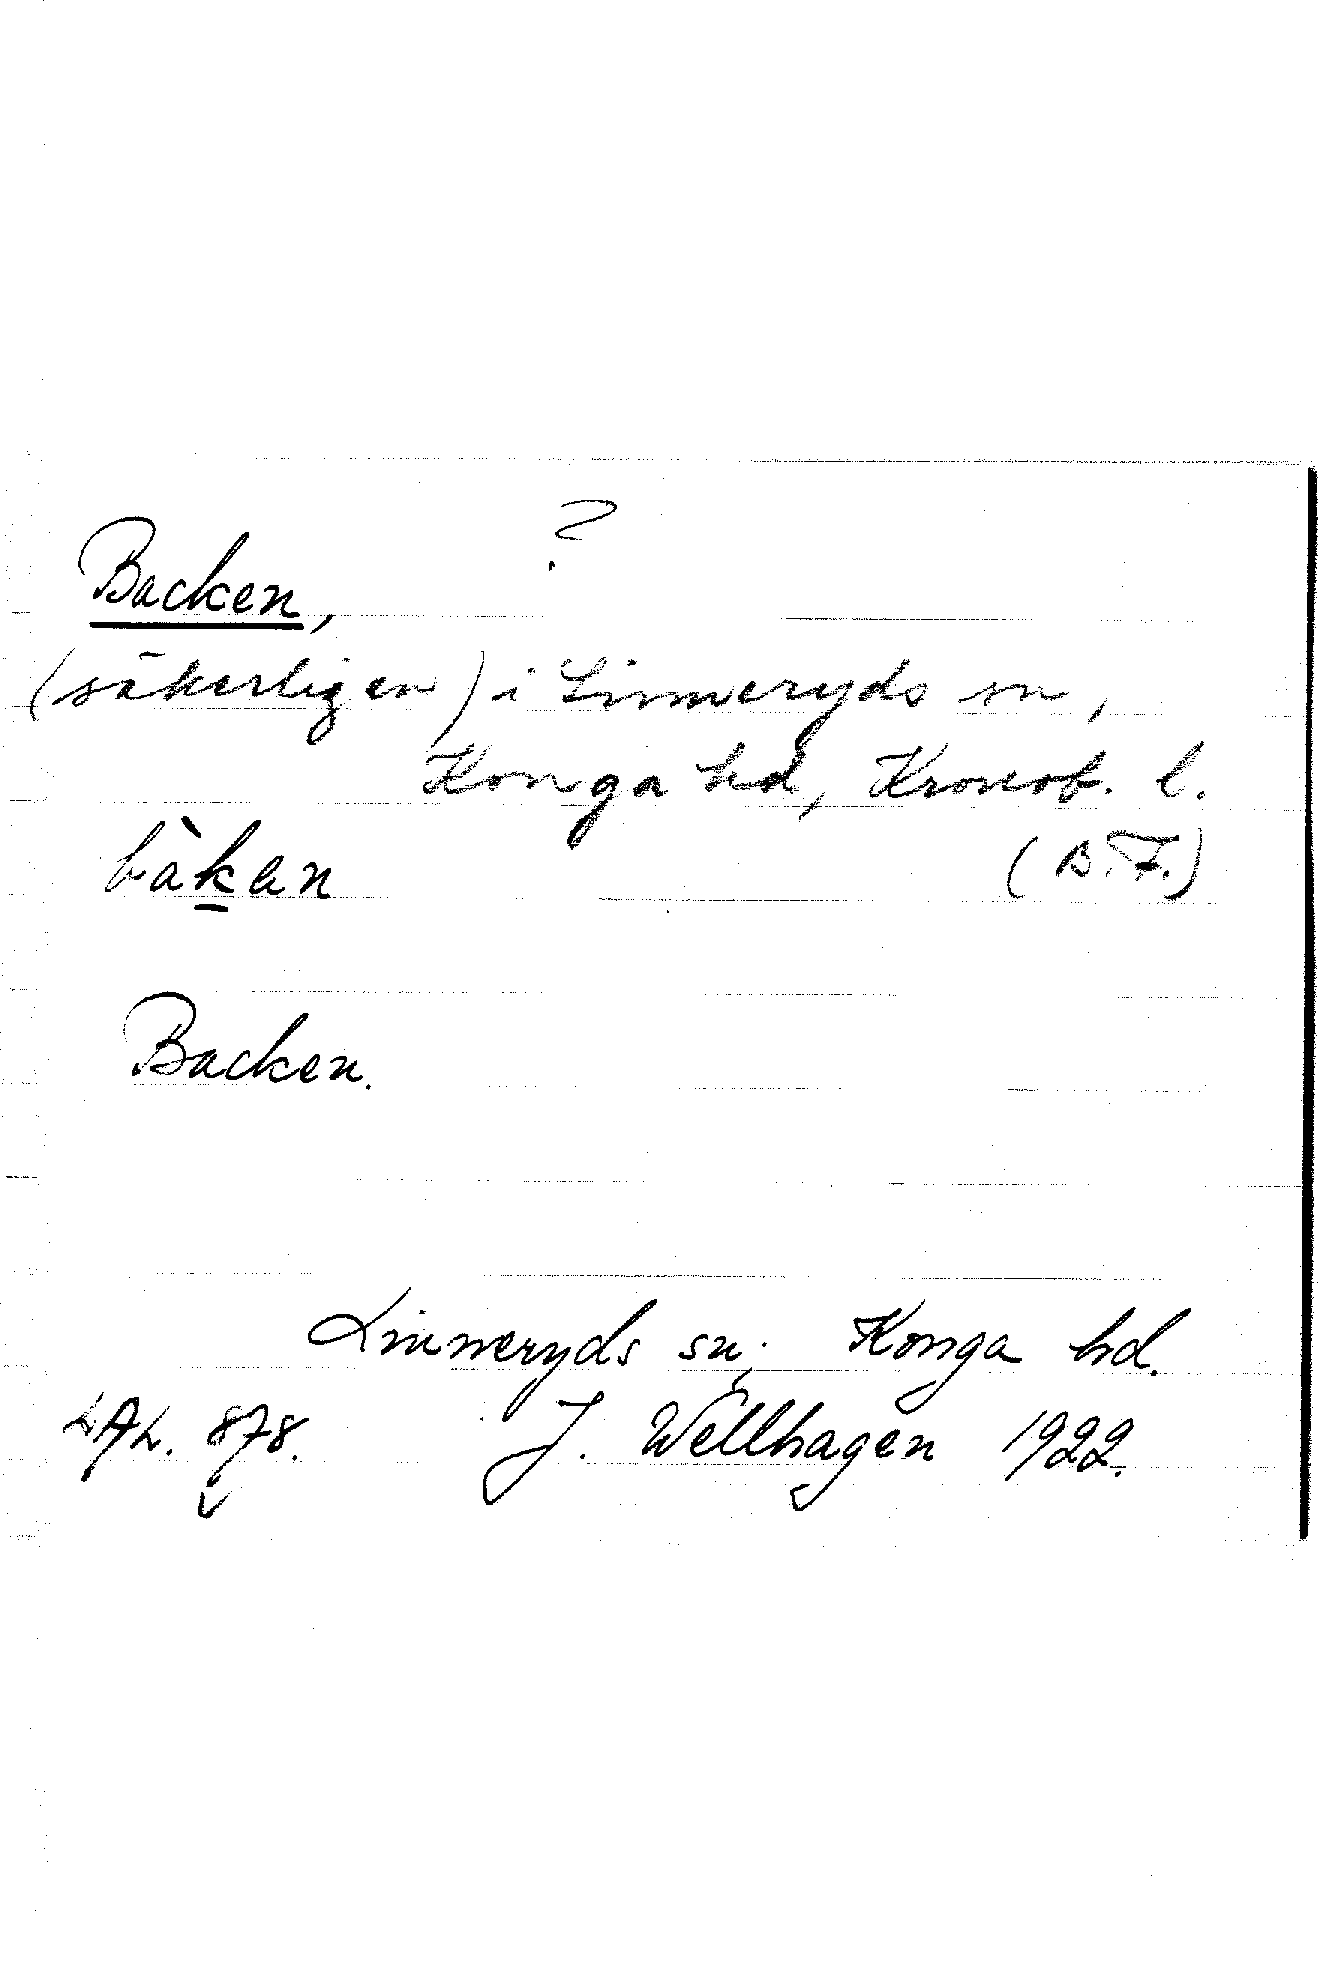 Backen, ?
(säkerligen) i Linneryds sn,
Konga hd, Kronob. l.
bàk̲an (B.F.)
Backen.
Linneryds sn, Konga hd.
LAL. 878. J. Wellhagen 1922.